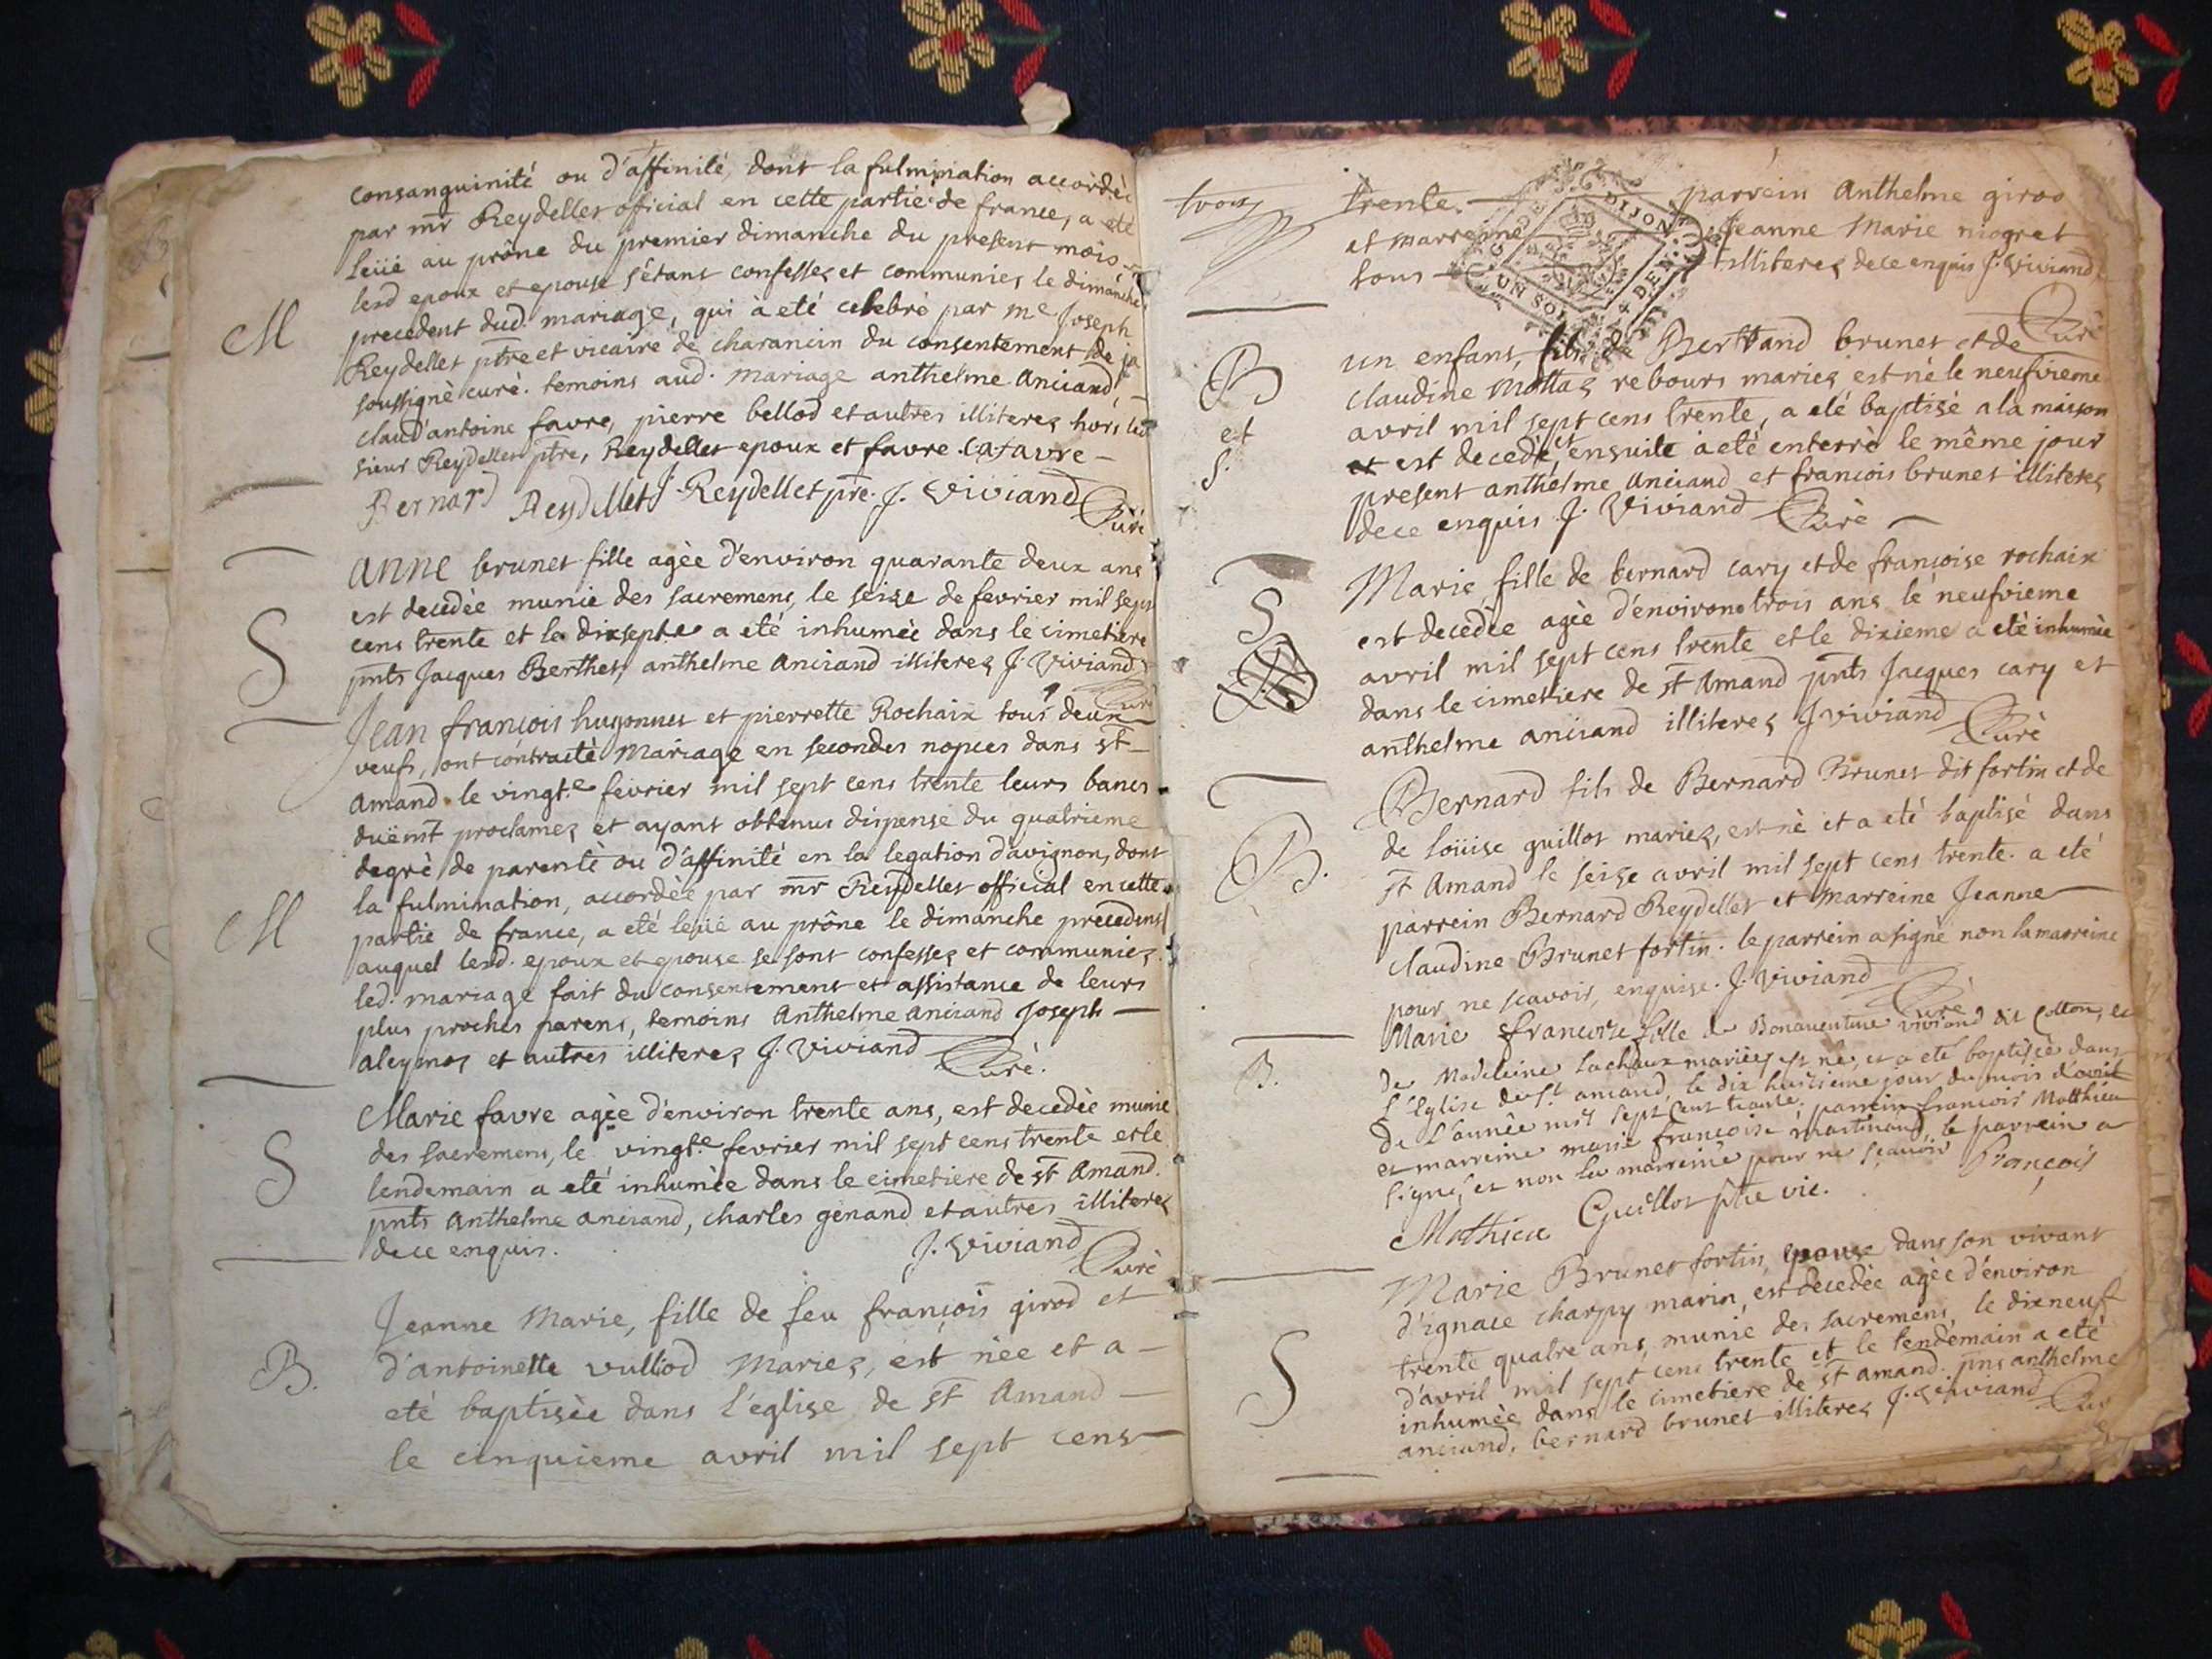 consanguinité ou d'affinité, dont la fulmination accordée
par mr Reydellet official en cette partie de france, a eté
leüe au prône du premier dimanche du present mois
lesd epoux et epouse s'étant confessez et communiez le dimanche
M
precedent dud. mariage, qui à eté celebré par me Joseph
Reydellet ptre et vicaire de charancin du consentement de
soussigné curé. temoins aud. mariage anthelme Anciand,
claud'antoine favre, pierre bellod et autres illiterez hors led
sieur Reydellet ptre, Reydellet epoux et favre. C.a. favre
Bernard Reydellet J. Reydellet pre. J. Viviand Curé
anne brunet fille agèe d'environ quarante deux ans
est decedèe munie des sacremens, le seize de fevrier mil sept
S
cens trente et le dixsept.e a eté inhumèe dans le cimetiere
pnts Jacques Berthet, anthelme Anciand illiterez J. Viviand
Curé
Jean françois hugonnet et pierrette Rochaix tous deux
veufs, ont contracté Mariage en secondes nopces dans st
Amand le vingt.e fevrier mil sept cens trente leurs bancs
duëmt proclamez et ayant obtenus dispense du quatrieme
degrè de parentè ou d'affinité en la legation d'avignon, dont
la fulmination, accordèe par mr Reydellet official en cette
M
partie de france, a eté leüe au prône le dimanche precedent
auquel lesd. epoux et epouse se sont confessez et communiez.
led. mariage fait du consentement et assistance de leurs
plus proches parens, temoins Anthelme anciand Joseph
aleymos et autres illiterez J. Viviand Curè.
Marie favre agèe d'environ trente ans, est decedèe munie
des sacremens, le vingt.e fevrier mil sept cens trente et le
S
lendemain a eté inhumèe dans le cimetiere de st Amand.
pnts Anthelme anciand, charles genand et autres illiterez
de ce enquis. J. Viviand Curè
Jeanne Marie, fille de feu françois girod et
B.
d'antoinette vulliod Mariez, est nèe et a
eté baptisèe dans l'église de st Amand
le cinquieme avril mil sept cens
trois
trente. parrein Anthelme girod
et marreine Jeanne Marie mogret
tous illiterez de ce enquis J. Viviand
Curè
DIJON
UN SOL 4 DEN.
un enfant, fils de Bertrand brunet et de
B
claudine Mottaz rebours mariez est né le neufvieme
et
avril mil sept cens trente, a eté baptisè a la maison
S.
et est decedé, et ensuite a eté enterrè le même jour
present anthelme Anciand et francois brunet illiterez
de ce enquis J. Viviand Curè
Marie fille de bernard cary et de françoise rochaix
S
est decedèe agèe d'environ trois ans le neufvieme
avril mil sept cens trente et le dixieme a eté inhumèe
dans le cimetiere de st Amand pnts Jacques cary et
anthelme anciand illiterez J. Viviand Curè
Bernard fils de Bernard Brunet dit fortin et de
B.
de loüise guillot mariez, est nè et a eté baptisé dans
st Amand le seize avril mil sept cens trente. a eté
parrein Bernard Reydellet et Marreine Jeanne
claudine Brunet fortin. le parrein a signé non la marreine
pour ne scavoir, enquise. J. Viviand Curè
Marie francoise fille de Bonaventure viviand dit Cotton, et
B.
de Madeleine Lachaux mariéz est né, et a eté baptisée dans
L'Eglise de st amand, le dix huitieme jour du mois d'avril
de L'année mil sept cent trente. parrein francois Matthieu
et marreine marie francoise martinand, le parrein a
signé, et non la marreine pour ne sçavoir François
Mathieu Guillot ptre vic.
Marie Brunet fortin, epouse dans son vivant
d'ignace charpy marin, est decedèe agèe d'environ
S
trente quatre ans, munie des sacremens, le dixneuf
d'avril mil sept cens trente et le lendemain a eté
inhumèe dans le cimetiere de st amand. pns anthelme
anciand, bernard brunet illiterez J. Viviand Curè